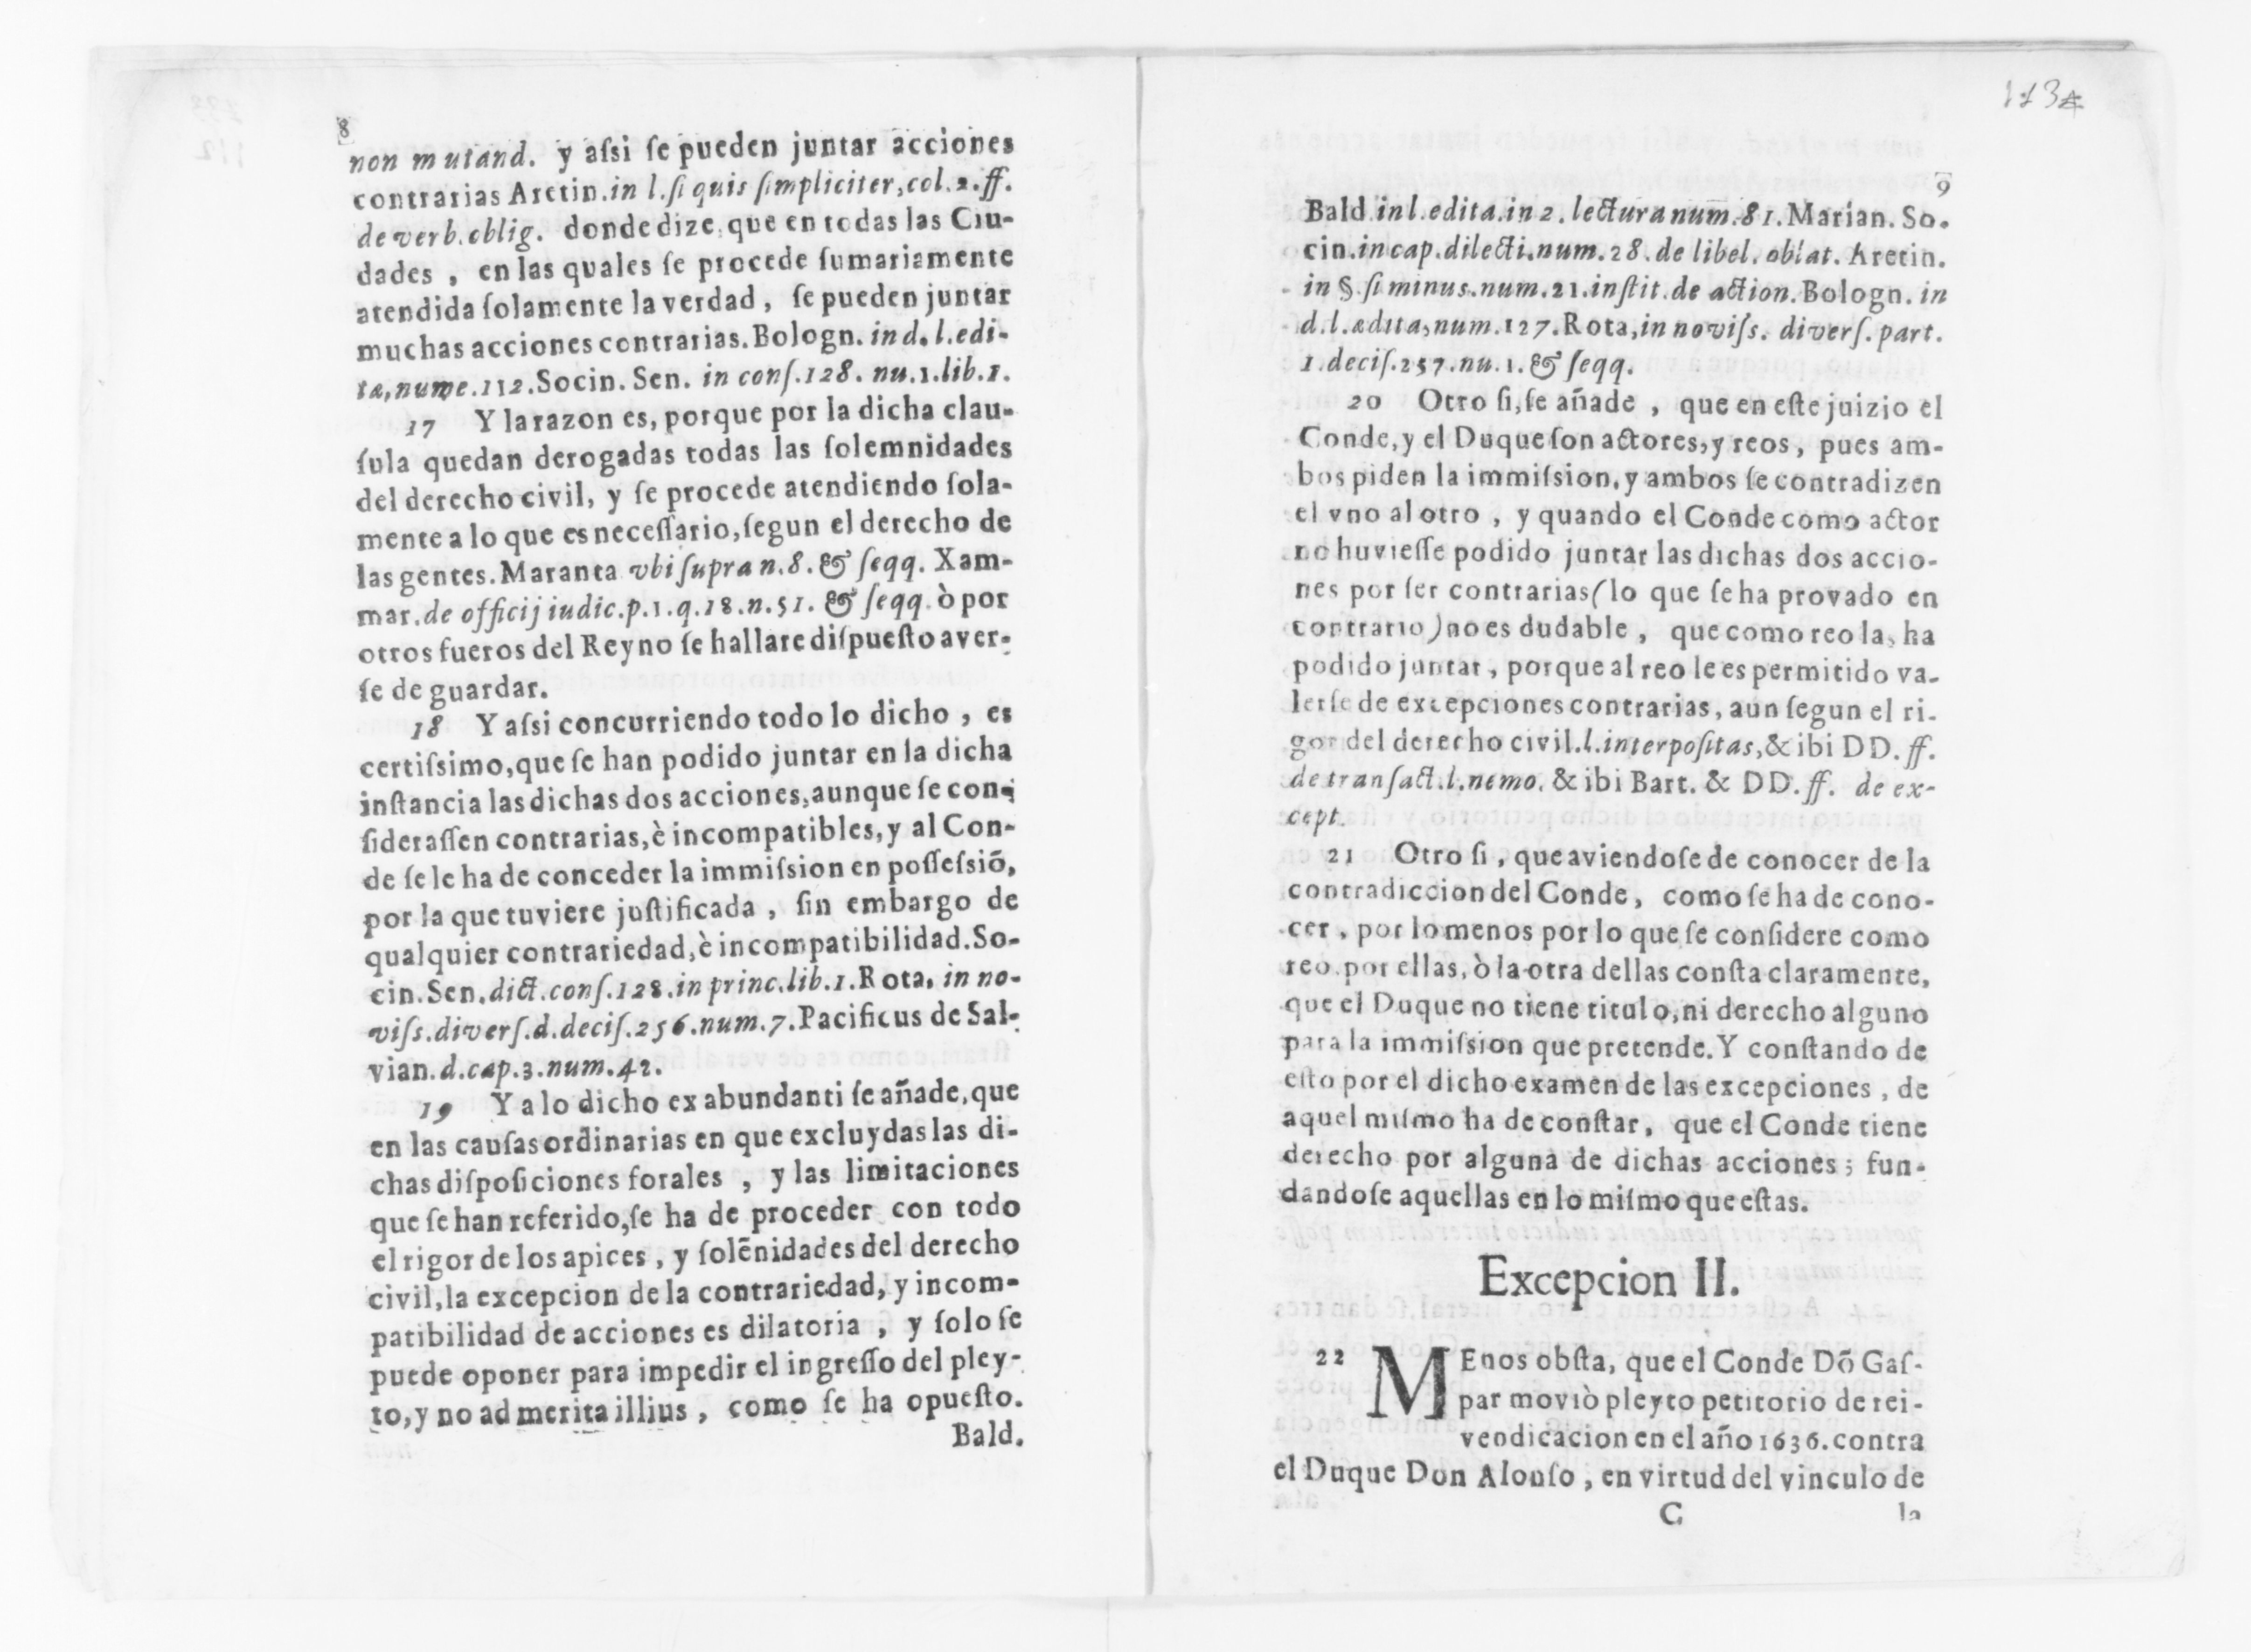 8
non mutand. y aſsi ſe pueden juntar acciones
contrarias Aretin. in l. ſi quis ſimpliciter, col. 2. ff.
de verb. oblig. donde dize que en todas las Ciu-
dades , en las quales ſe procede ſumariamente
atendida ſolamente la verdad , ſe pueden juntar
muchas acciones contrarias. Bologn. in d. l. edi-
ta, nume. 112. Socin. Sen. in conſ. 128. nu. 1. lib. 1.
17 Y la razon es, porque por la dicha clau-
ſula quedan derogadas todas las ſolemnidades
del derecho civil, y ſe procede atendiendo ſola-
mente a lo que es neceſſario, ſegun el derecho de
las gentes. Maranta vbi ſupra n. 8. & ſeqq. Xam-
mar. de officij iudic. p. 1. q. 18. n. 51. & ſeqq. ò por
otros fueros del Reyno ſe hallare diſpueſto aver-
ſe de guardar.
18 Y aſsi concurriendo todo lo dicho , es
certiſsimo, que ſe han podido juntar en la dicha
inſtancia las dichas dos acciones, aunque ſe con-
ſideraſſen contrarias, è incompatibles, y al Con-
de ſe le ha de conceder la immiſsion en poſſeſsiõ,
por la que tuviere juſtificada , ſin embargo de
qualquier contrariedad, è incompatibilidad. So-
cin. Sen. dict. conſ. 128. in princ. lib. 1. Rota, in no-
viſs. diverſ. d. deciſ. 256. num. 7. Pacificus de Sal-
vian. d. cap. 3. num. 42.
19 Y a lo dicho ex abundanti ſe añade, que
en las cauſas ordinarias en que excluydas las di-
chas diſpoſiciones forales , y las limitaciones
que ſe han referido, ſe ha de proceder con todo
el rigor de los apices , y ſolẽnidades del derecho
civil, la excepcion de la contrariedad, y incom-
patibilidad de acciones es dilatoria , y ſolo ſe
puede oponer para impedir el ingreſſo del pley-
to, y no ad merita illius , como ſe ha opueſto.
Bald.
9
Bald. in l. edita. in 2. lectura num. 81. Marian. So-
cin. in cap. dilecti. num. 28. de libel. oblat. Aretin.
in §. ſi minus. num. 21. inſtit. de action. Bologn. in
d. l. edita, num. 127. Rota, in noviſs. diverſ. part.
1. deciſ. 257. nu. 1. & ſeqq.
20 Otro ſi, ſe añade , que en eſte juizio el
Conde, y el Duque ſon actores, y reos , pues am-
bos piden la immiſsion, y ambos ſe contradizen
el vno al otro , y quando el Conde como actor
no huvieſſe podido juntar las dichas dos accio-
nes por ſer contrarias (lo que ſe ha provado en
contrario) no es dudable , que como reo la, ha
podido juntar , porque al reo le es permitido va-
lerſe de excepciones contrarias, aun ſegun el ri-
gor del derecho civil. l. interpoſitas, & ibi DD. ff.
de tranſact. l. nemo. & ibi Bart. & DD. ff. de ex-
cept.
21 Otro ſi , que aviendoſe de conocer de la
contradiccion del Conde , como ſe ha de cono-
cer , por lo menos por lo que ſe conſidere como
reo. por ellas, ò la otra dellas conſta claramente,
que el Duque no tiene titulo, ni derecho alguno
para la immiſsion que pretende. Y conſtando de
eſto por el dicho examen de las excepciones , de
aquel miſmo ha de conſtar , que el Conde tiene
derecho por alguna de dichas acciones ; fun-
dandoſe aquellas en lo miſmo que eſtas.
Excepcion II.
22 MEnos obſta, que el Conde Dõ Gaſ-
par moviò pleyto petitorio de rei-
vendicacion en el año 1636. contra
el Duque Don Alonſo , en virtud del vinculo de
C la